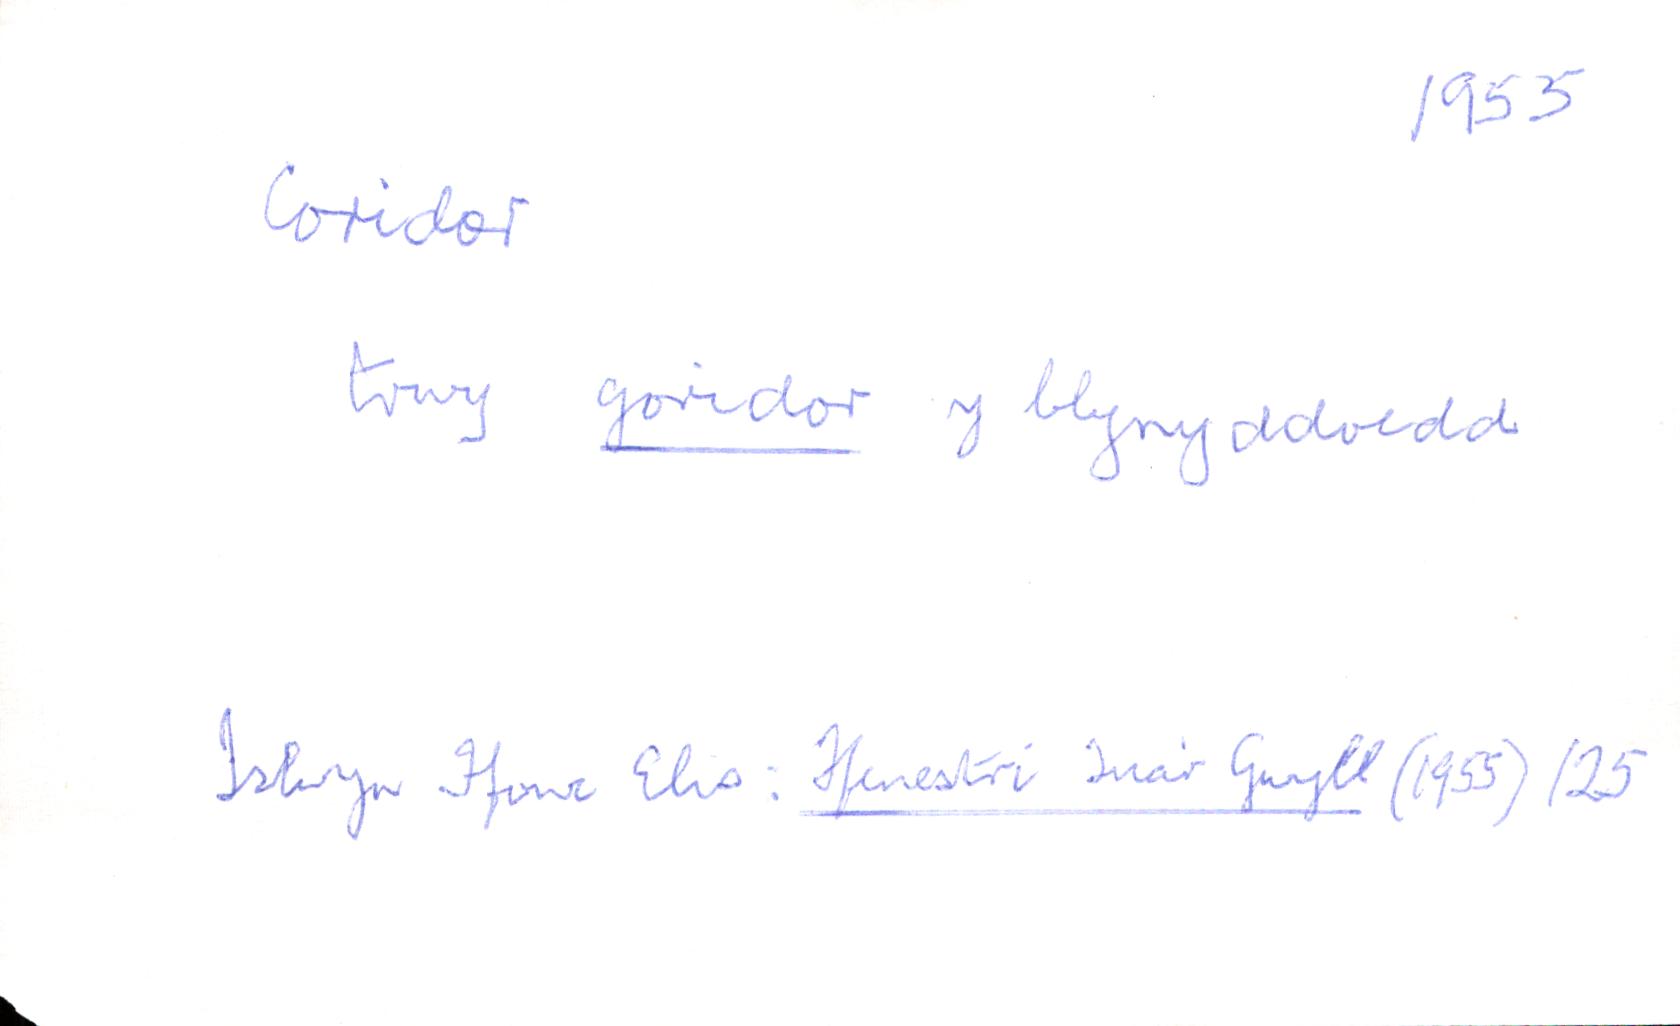 1955
Coridor
trwy goridor y blynyddoedd
Islwyn Ffowc Elis: Ffenestri Tua'r Gwyll (1955) 125